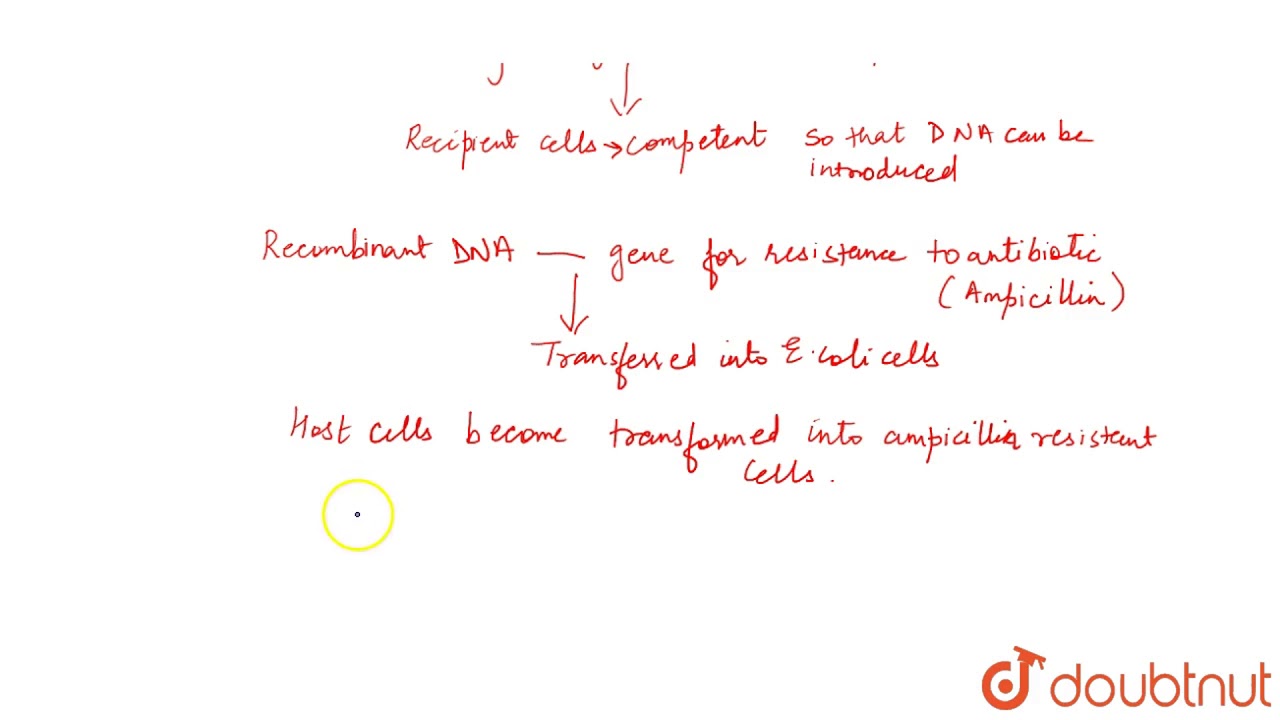 Recipient cells → competent so that DNA can be
introduced
Recombinant DNA — gene for resistance to antibiotic
(Ampicillin)
Transferred into E.coli cells
Host cells become transformed into ampicillin resistant
cells.
doubtnut